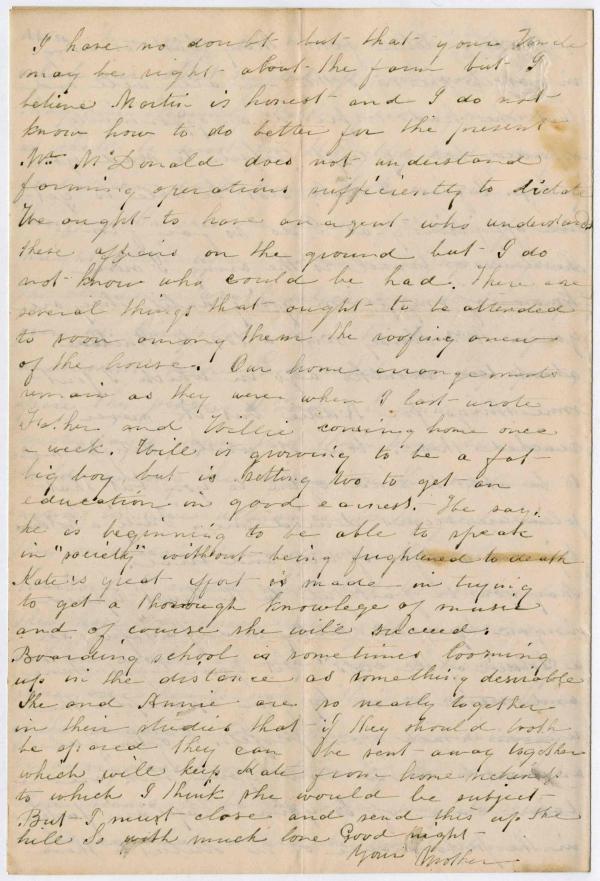 I have no doubt but that your Uncle
may be right about the farm but I
believe Martin is honest and I do not
know how to do better for the present
Mr. McDonald does not understand
farming operations sufficiently to dictate
We ought to have an agent who understands
these affairs on the ground but I do
not know who could be had. There are
several things that ought to be attended
to soon among them the roofing anew
of the house. Our home arrangements
remain as they were when I last wrote
Father and Willie coming home once
a week. Will is growing to be a fat
big boy but is setting too to get an
education in good earnest. He says
he is beginning to be able to speak
in "society" without being frightened to death
Kate's great effort is made in trying
to get a thorough knowlege of music
and of course she will succeed.
Boarding school is sometimes looming
up in the distance as something desirable
She and Annie are so nearly together
in their studies that if they should both
be spared they can be sent away together
which will keep Kate from home
to which I think she would be subject
But I must close and send this up the
hill So with much love Good night
Your Mother